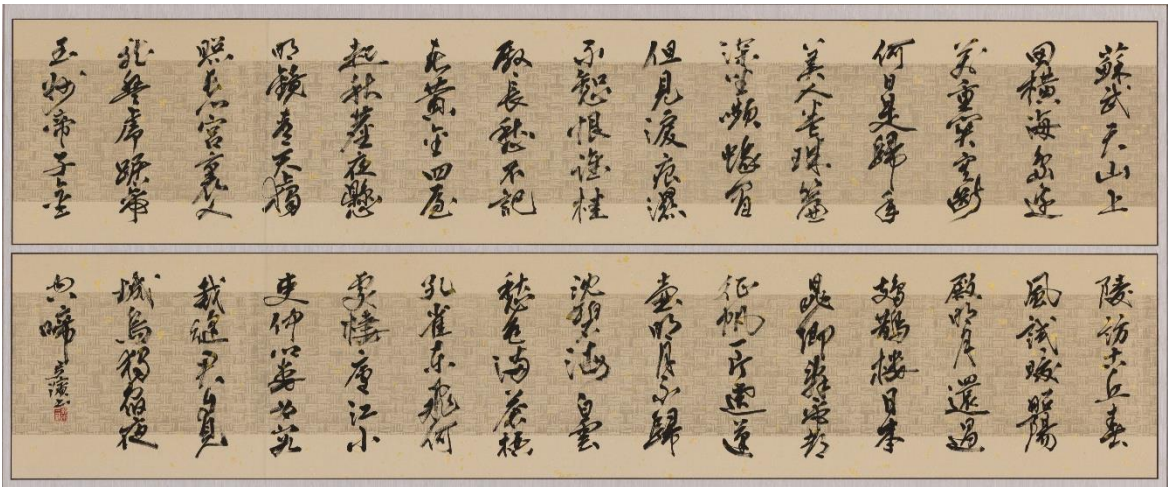 蘇武天山上
田橫海島邊
萬重關塞斷
何日是歸年
美人卷珠簾
深坐嚬蛾眉
但見淚痕濕
不知心恨誰桂
殿長愁不記
春黃金四屋
起秋塵夜懸
明鏡青天獨
照長門宮裏人
龍盤虎踞帝
王州帝子金
陵訪古丘春
風試暖昭陽
殿明月還過
鳷鵲樓日本
晁卿辭帝都
征帆一片遶蓬
壺明月不歸
沈碧海白雲
愁色滿蒼梧
孔雀東飛何
處棲廬江小
吏仲卿妻為客
裁縫君自見
城烏獨宿夜
空啼